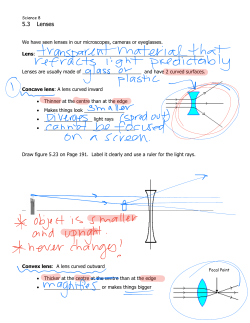 Science 8
5.3 Lenses
We have seen lenses in our microscopes, cameras or eyeglasses.
Lens: transparent material that
refracts light predictably
Lenses are usually made of glass or plastic and have 2 curved surfaces.
1 Concave lens: A lens curved inward
• Thinner at the centre than at the edge
• Makes things look smaller
• Diverges light rays (spread out)
• cannot be focused
on a screen.
Draw figure 5.23 on Page 191. Label it clearly and use a ruler for the light rays.
* object is smaller
and upright.
* never changes!
Convex lens: A lens curved outward
• Thicker at the centre at the centre than at the edge
• magnifies or makes things bigger
Focal Point